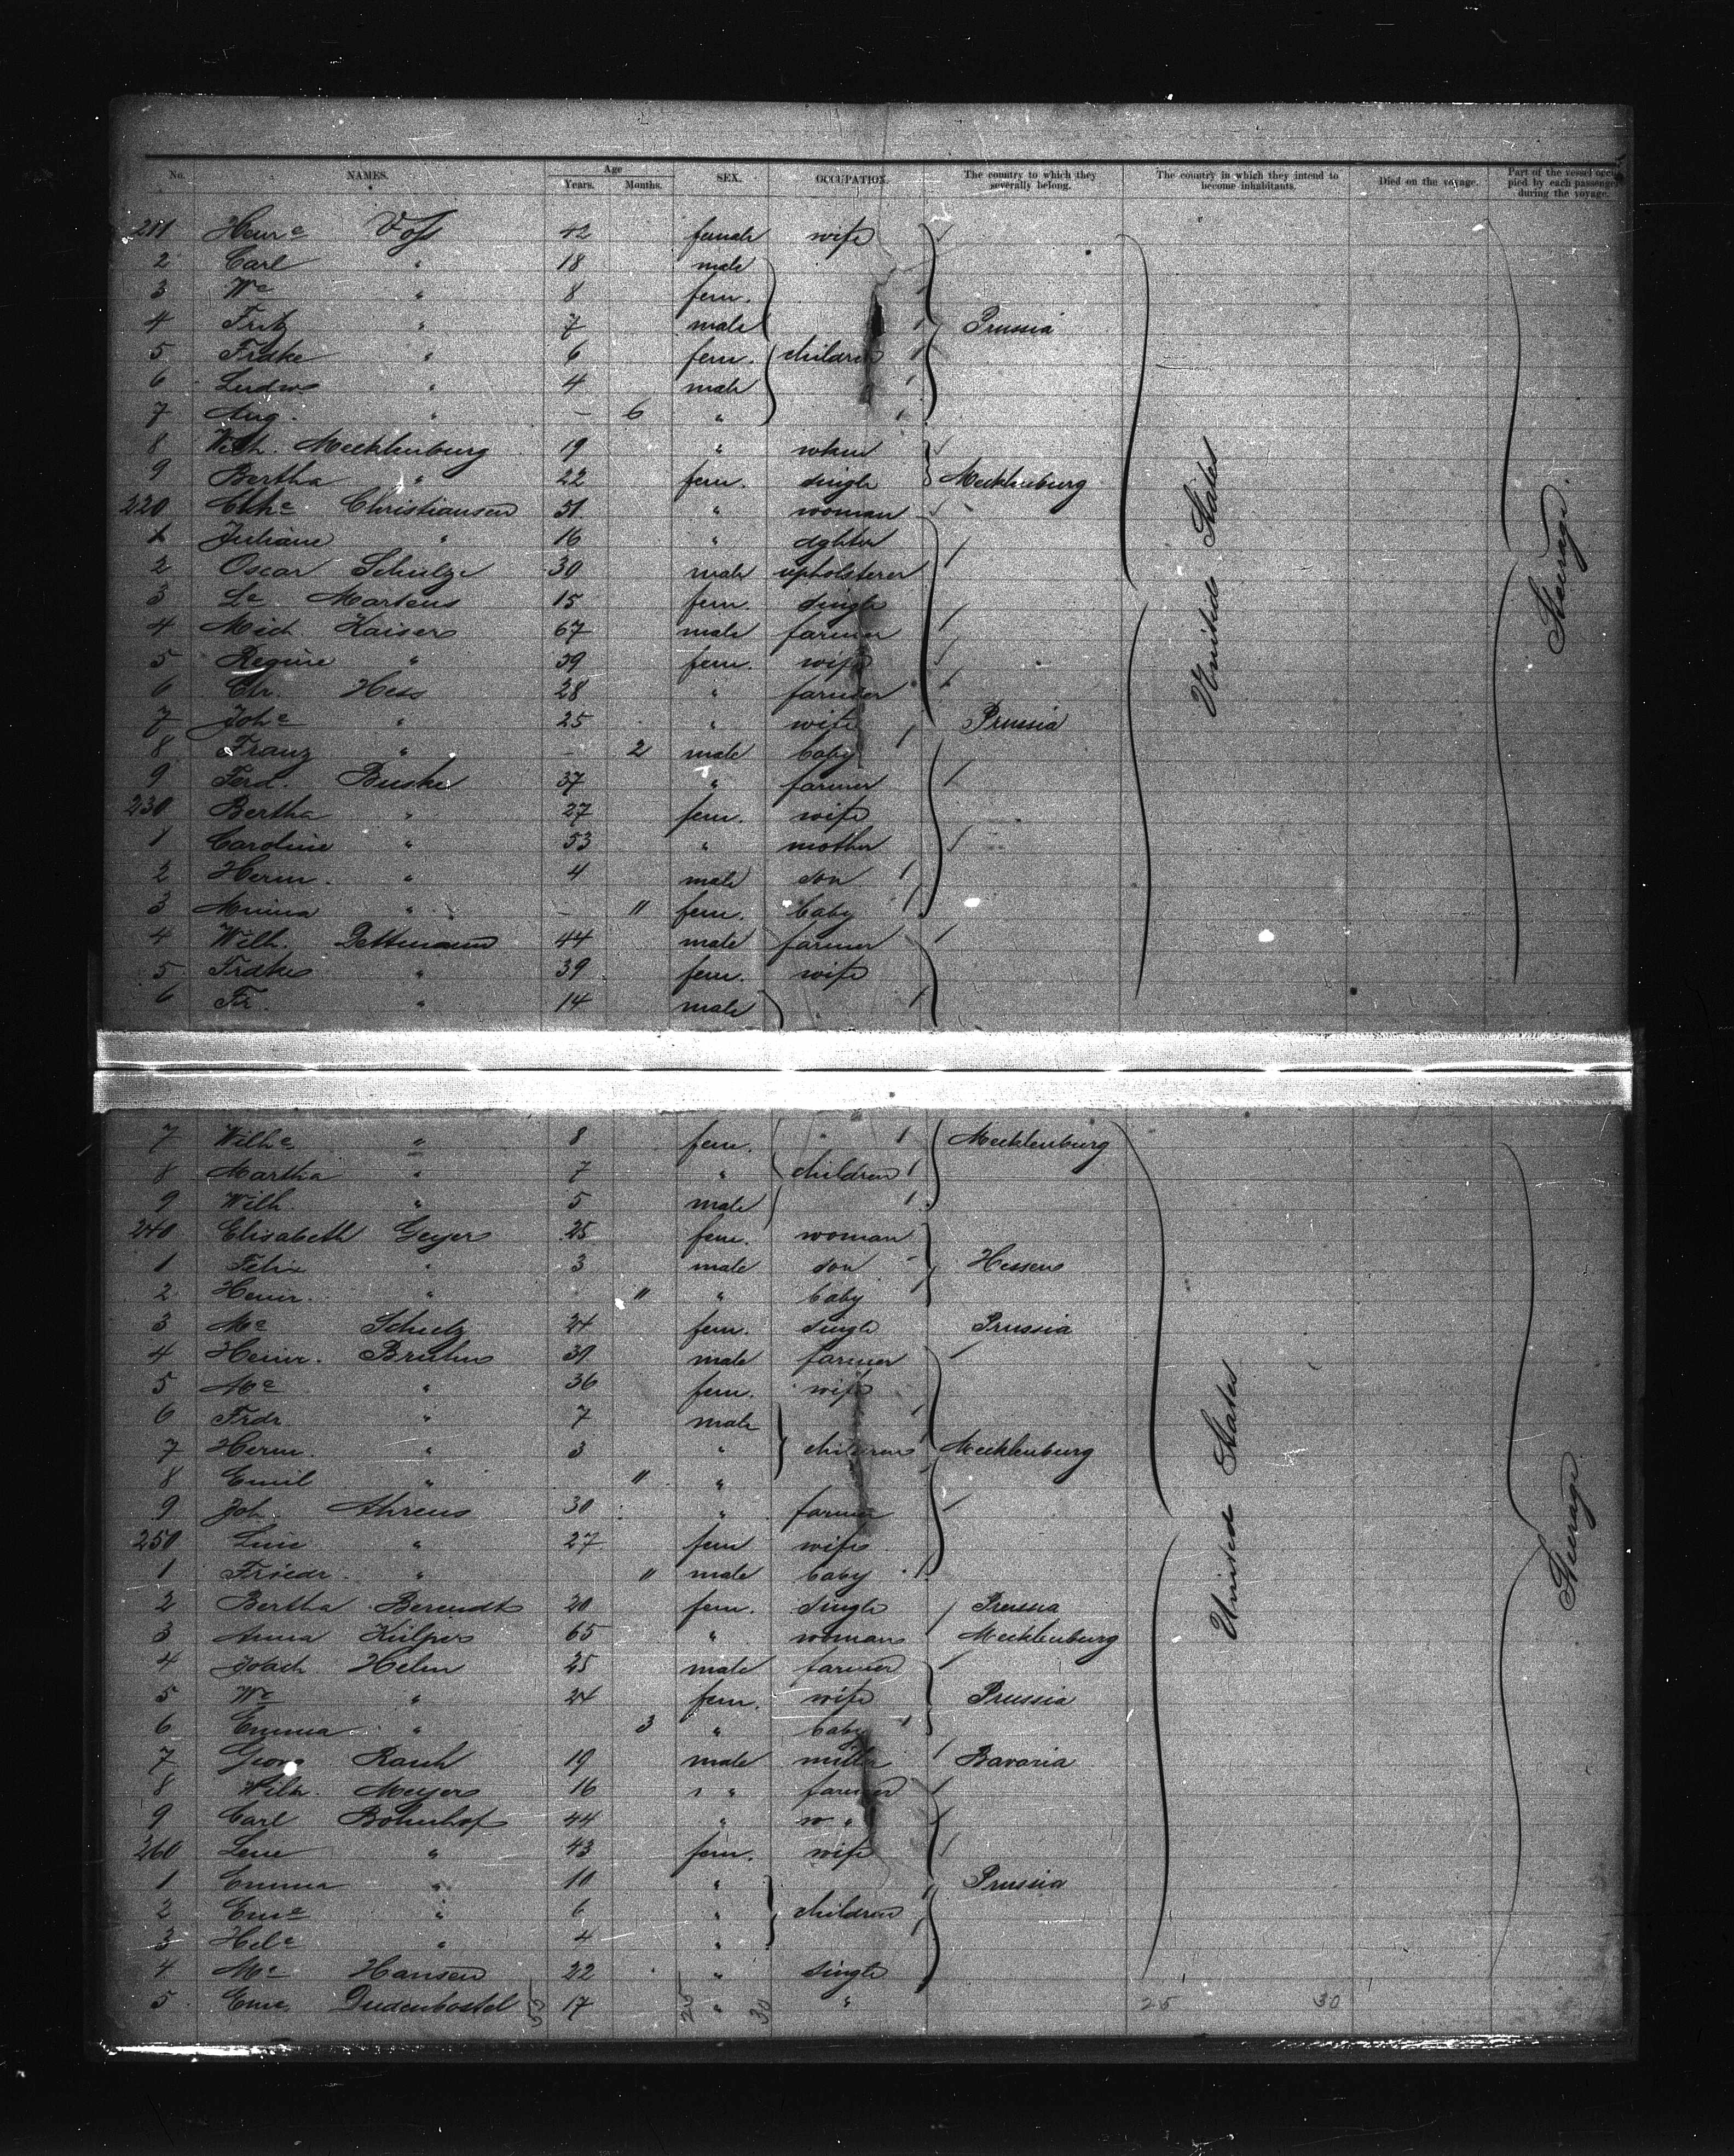 No. NAMES. Age Years. Months. SEX. OCCUPATION. The country to which they severally belong. The country in which they intend to become inhabitants. Died on the voyage. Part of the vessel occupied by each passenger during the voyage.
211 Henre Voss 42 female wife
2 Carl " 18 male
3 We " 8 fem.
4 Fritz " 7 male Prussia
5 Fradke " 6 fem. children
6 Ludw " 4 male
7 Aug. " – 6 "
8 Wilh. Mecklenburg 19 "
9 Bertha " 22 fem. single Mecklenburg
220 Christiansen 51 " woman
1 Juliane " 16 " dghter
2 Oscar Schulze 30 male upholsterer
3 Le Martens 15 fem. single
4 Mich. Kaiser 67 male farmer
5 Regine " 59 fem. wife
6 Chr. Hess 28 " farmer
7 Johe " 25 " wife Prussia
8 Franz " – 2 male baby
9 Ferd. Buske 37 " farmer
230 Bertha " 27 fem. wife
1 Caroline " 53 " mother
2 Herm. " 4 male son
3 Minna " – 11 fem. baby
4 Wilh. Dettmann 44 male farmer
5 Fradke " 39 fem. wife
6 Fr. " 14 male
United States
Steerage
7 Wilhe " 8 fem. " Mecklenburg
8 Martha " 7 " children
9 Wilh. " 5 male
240 Elisabeth Geyer 25 fem. woman
1 Felix " 3 male son Hessen
2 Henr. " 11 " baby
3 Me Schulz 24 fem. single Prussia
4 Heinr. Bruhns 39 male farmer
5 Me " 36 fem. wife
6 Frdr " 7 male
7 Herm. " 3 " children Mecklenburg
8 Emil " 11 "
9 Joh. Ahrens 30 " farmer
250 Line " 27 fem wife
1 Friedr. " 11 male baby
2 Bertha Berendt 20 fem. single Prussia
3 Anna Külper 65 " woman Mecklenburg
4 Joach. Helm 25 male farmer
5 We " 24 fem. wife Prussia
6 Emma " 3 " baby
7 Georg Rauh 19 male miller Bavaria
8 Wilh. Meyer 16 " farmer
9 Carl Bohnhof 44 " "
260 Lene " 43 fem. wife
1 Emma " 10 " Prussia
2 Eme " 6 " children
3 Hele " 4 "
4 Me Hansen 22 " single
5 Eme Dudenbostel 17 " "
United States
Steerage
55 25 30 25 30